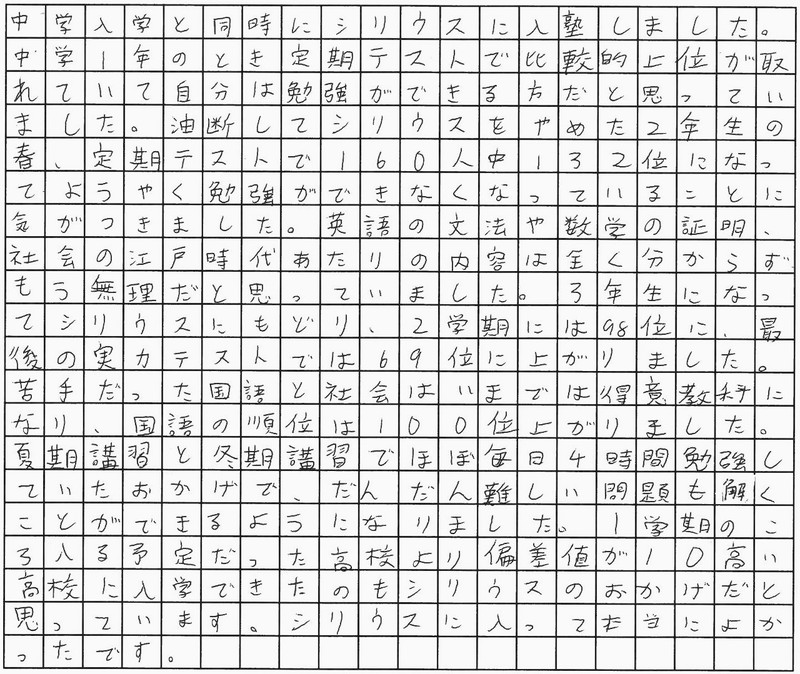 中学入学と同時にシリウスに入塾しました。
中学1年のとき定期テストで比較的上位が取
れていて自分は勉強ができる方だと思ってい
ました。油断してシリウスをやめた2年生の
春、定期テストで160人中132位になっ
てようやく勉強ができなくなっていることに
気がつきました。英語の文法や数学の証明、
社会の江戸時代あたりの内容は全く分からず
もう無理だと思っていました。3年生になっ
てシリウスにもどり、2学期には98位に、最
後の実力テストでは69位に上がりました。
苦手だった国語と社会はいまでは得意教科に
なり、国語の順位は100位上がりました。
夏期講習と冬期講習でほぼ毎日4時間勉強し
ていたおかげで、だんだん難しい問題も解く
ことができるようになりました。1学期のこ
ろ入る予定だった高校より偏差値が10高い
高校に入学できたのもシリウスのおかげだと
思っています。シリウスに入って本当によか
ったです。